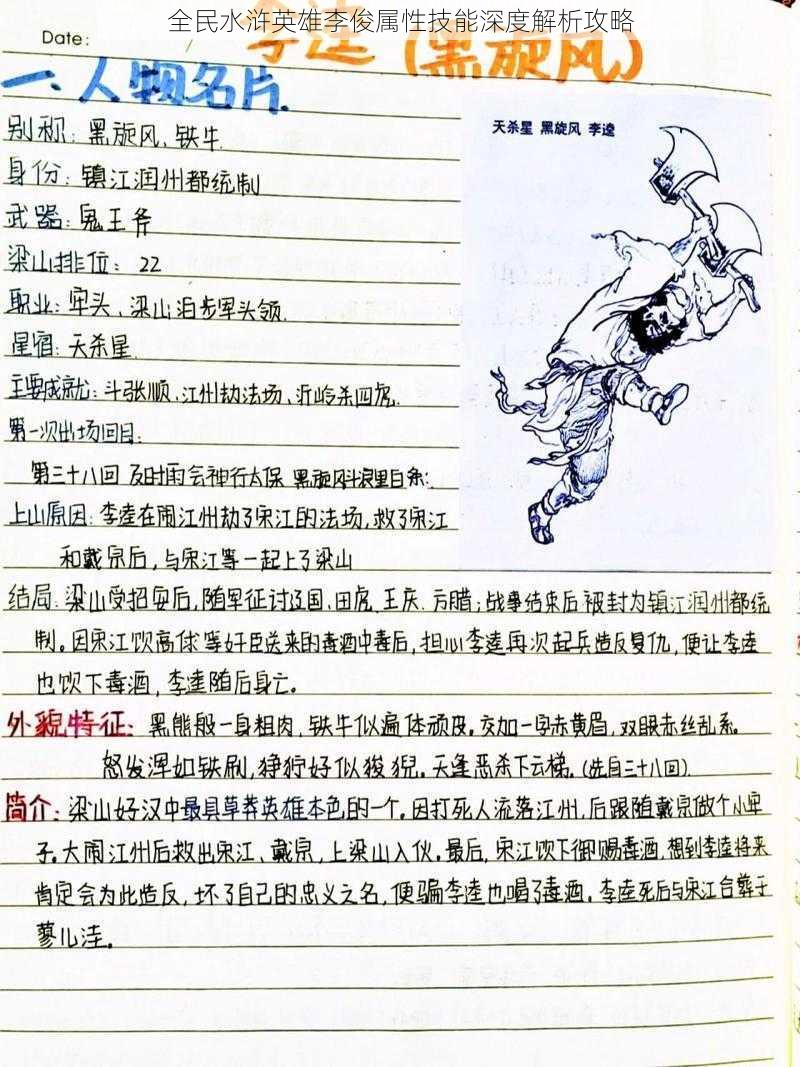 全民水浒英雄李俊属性技能深度解析攻略
Date:
李逵(黑旋风)
一、人物名片.
别称：黑旋风、铁牛
身份：镇江润州都统制
武器：鬼王斧
梁山排位：22
职业：牢头、梁山泊步军头领.
星宿：天杀星.
主要成就：斗张顺、江州劫法场、沂岭杀四虎.
第一次出场回目：
第三十八回 及时雨会神行太保 黑旋风斗浪里白条：
上山原因：李逵在闹江州劫了宋江的法场，救了宋江
和戴宗后，与宋江等一起上了梁山
结局：梁山受招安后，随军征讨辽国、田虎、王庆、方腊；战事结束后被封为镇江润州都统
制。因宋江饮高俅等奸臣送来的毒酒中毒后，担心李逵再次起兵造反复仇，便让李逵
也饮下毒酒，李逵随后身亡。
外貌特征：黑熊般一身粗肉，铁牛似遍体顽皮。交加一字赤黄眉，双眼赤丝乱系。
怒发浑如铁刷，狰狞好似狻猊。天蓬恶杀下云梯。(选自三十八回)
简介：梁山好汉中最具草莽英雄本色的一个。因打死人流落江州，后跟随戴宗做个小牢
子。大闹江州后救出宋江、戴宗，上梁山入伙。最后，宋江饮下御赐毒酒，想到李逵将来
肯定会为此造反，坏了自己的忠义之名，便骗李逵也喝了毒酒。李逵死后与宋江合葬于
蓼儿洼。
天杀星 黑旋风 李逵